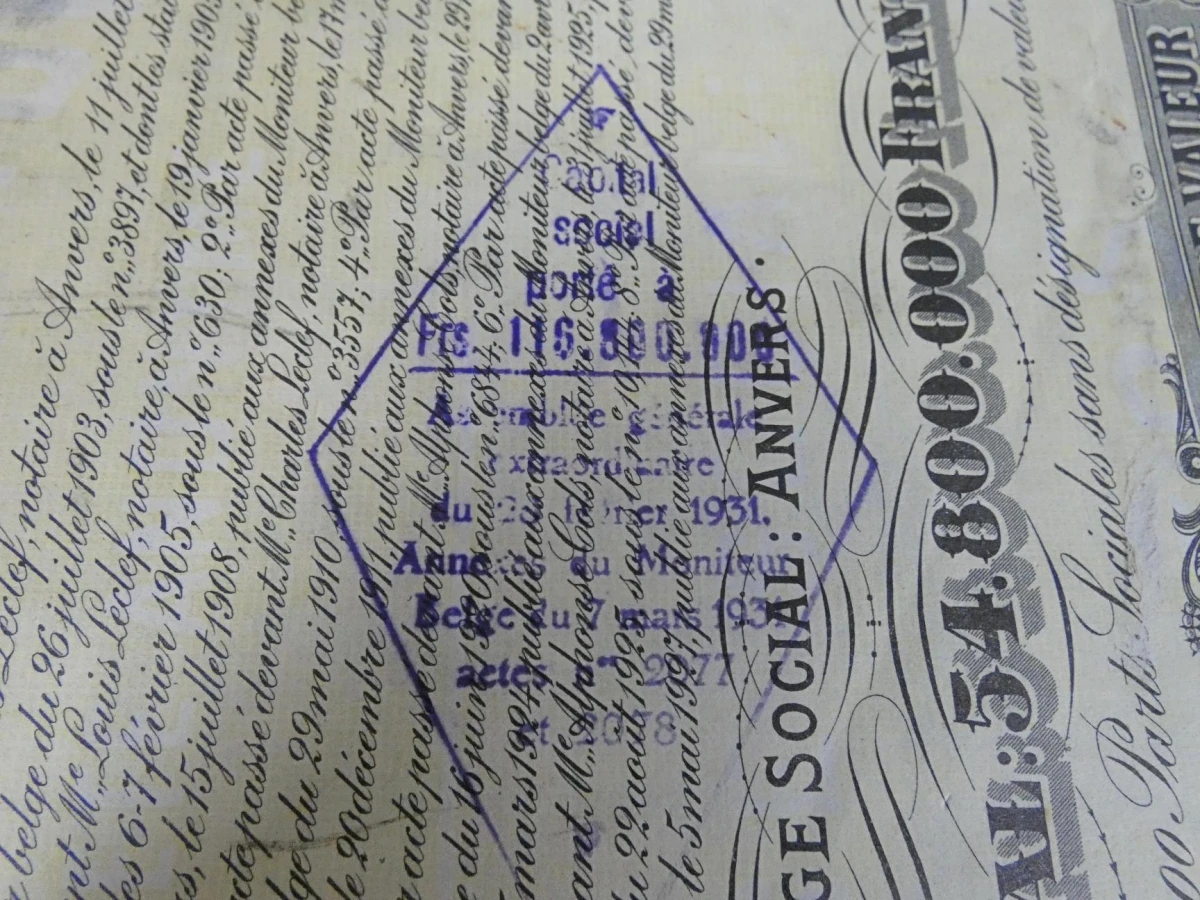 Leclef, notaire à Anvers, le 11 juillet
belge du 26 juillet 1903, sous le n° 3897, et dont les stat
Me Louis Leclef, notaire à Anvers, le 19 janvier 190
6-7 février 1905, sous le n° 630; 2° Par acte passé
le 15 juillet 1908, publié aux annexes du Moniteur be
acte passé devant Me Charles Leclef, notaire à Anvers, le 17 m
ge du 29 mai 1910, sous le n° 3557; 4° Par acte passé
le 20 décembre 1911, publié aux annexes du Moniteur be
acte passé devant Me Alphonse Cols, notaire à Anvers, le 29
du 16 juin 1920, sous le n° 6844; 6° Par acte passé devan
mars 1924, publié aux annexes du Moniteur belge du 2 avr
ant Me Alphonse Cols, notaire à Anvers, le juillet 1925,
du 22 aout 1925 sous le n° 8° Par acte passé dev
le 5 mai 1927, publié aux annexes du Moniteur belge du 29 m
Capital
social
porté à
Frs. 116.800.000
Assemblée générale
extraordinaire
du février 1931.
Annexes du Moniteur
Belge du 7 mars 1931,
actes nos 2077
et 2078
GE SOCIAL: ANVERS.
AL: 54.800.000 FRAN
00 Parts Sociales sans désignation de valeu
VALEUR